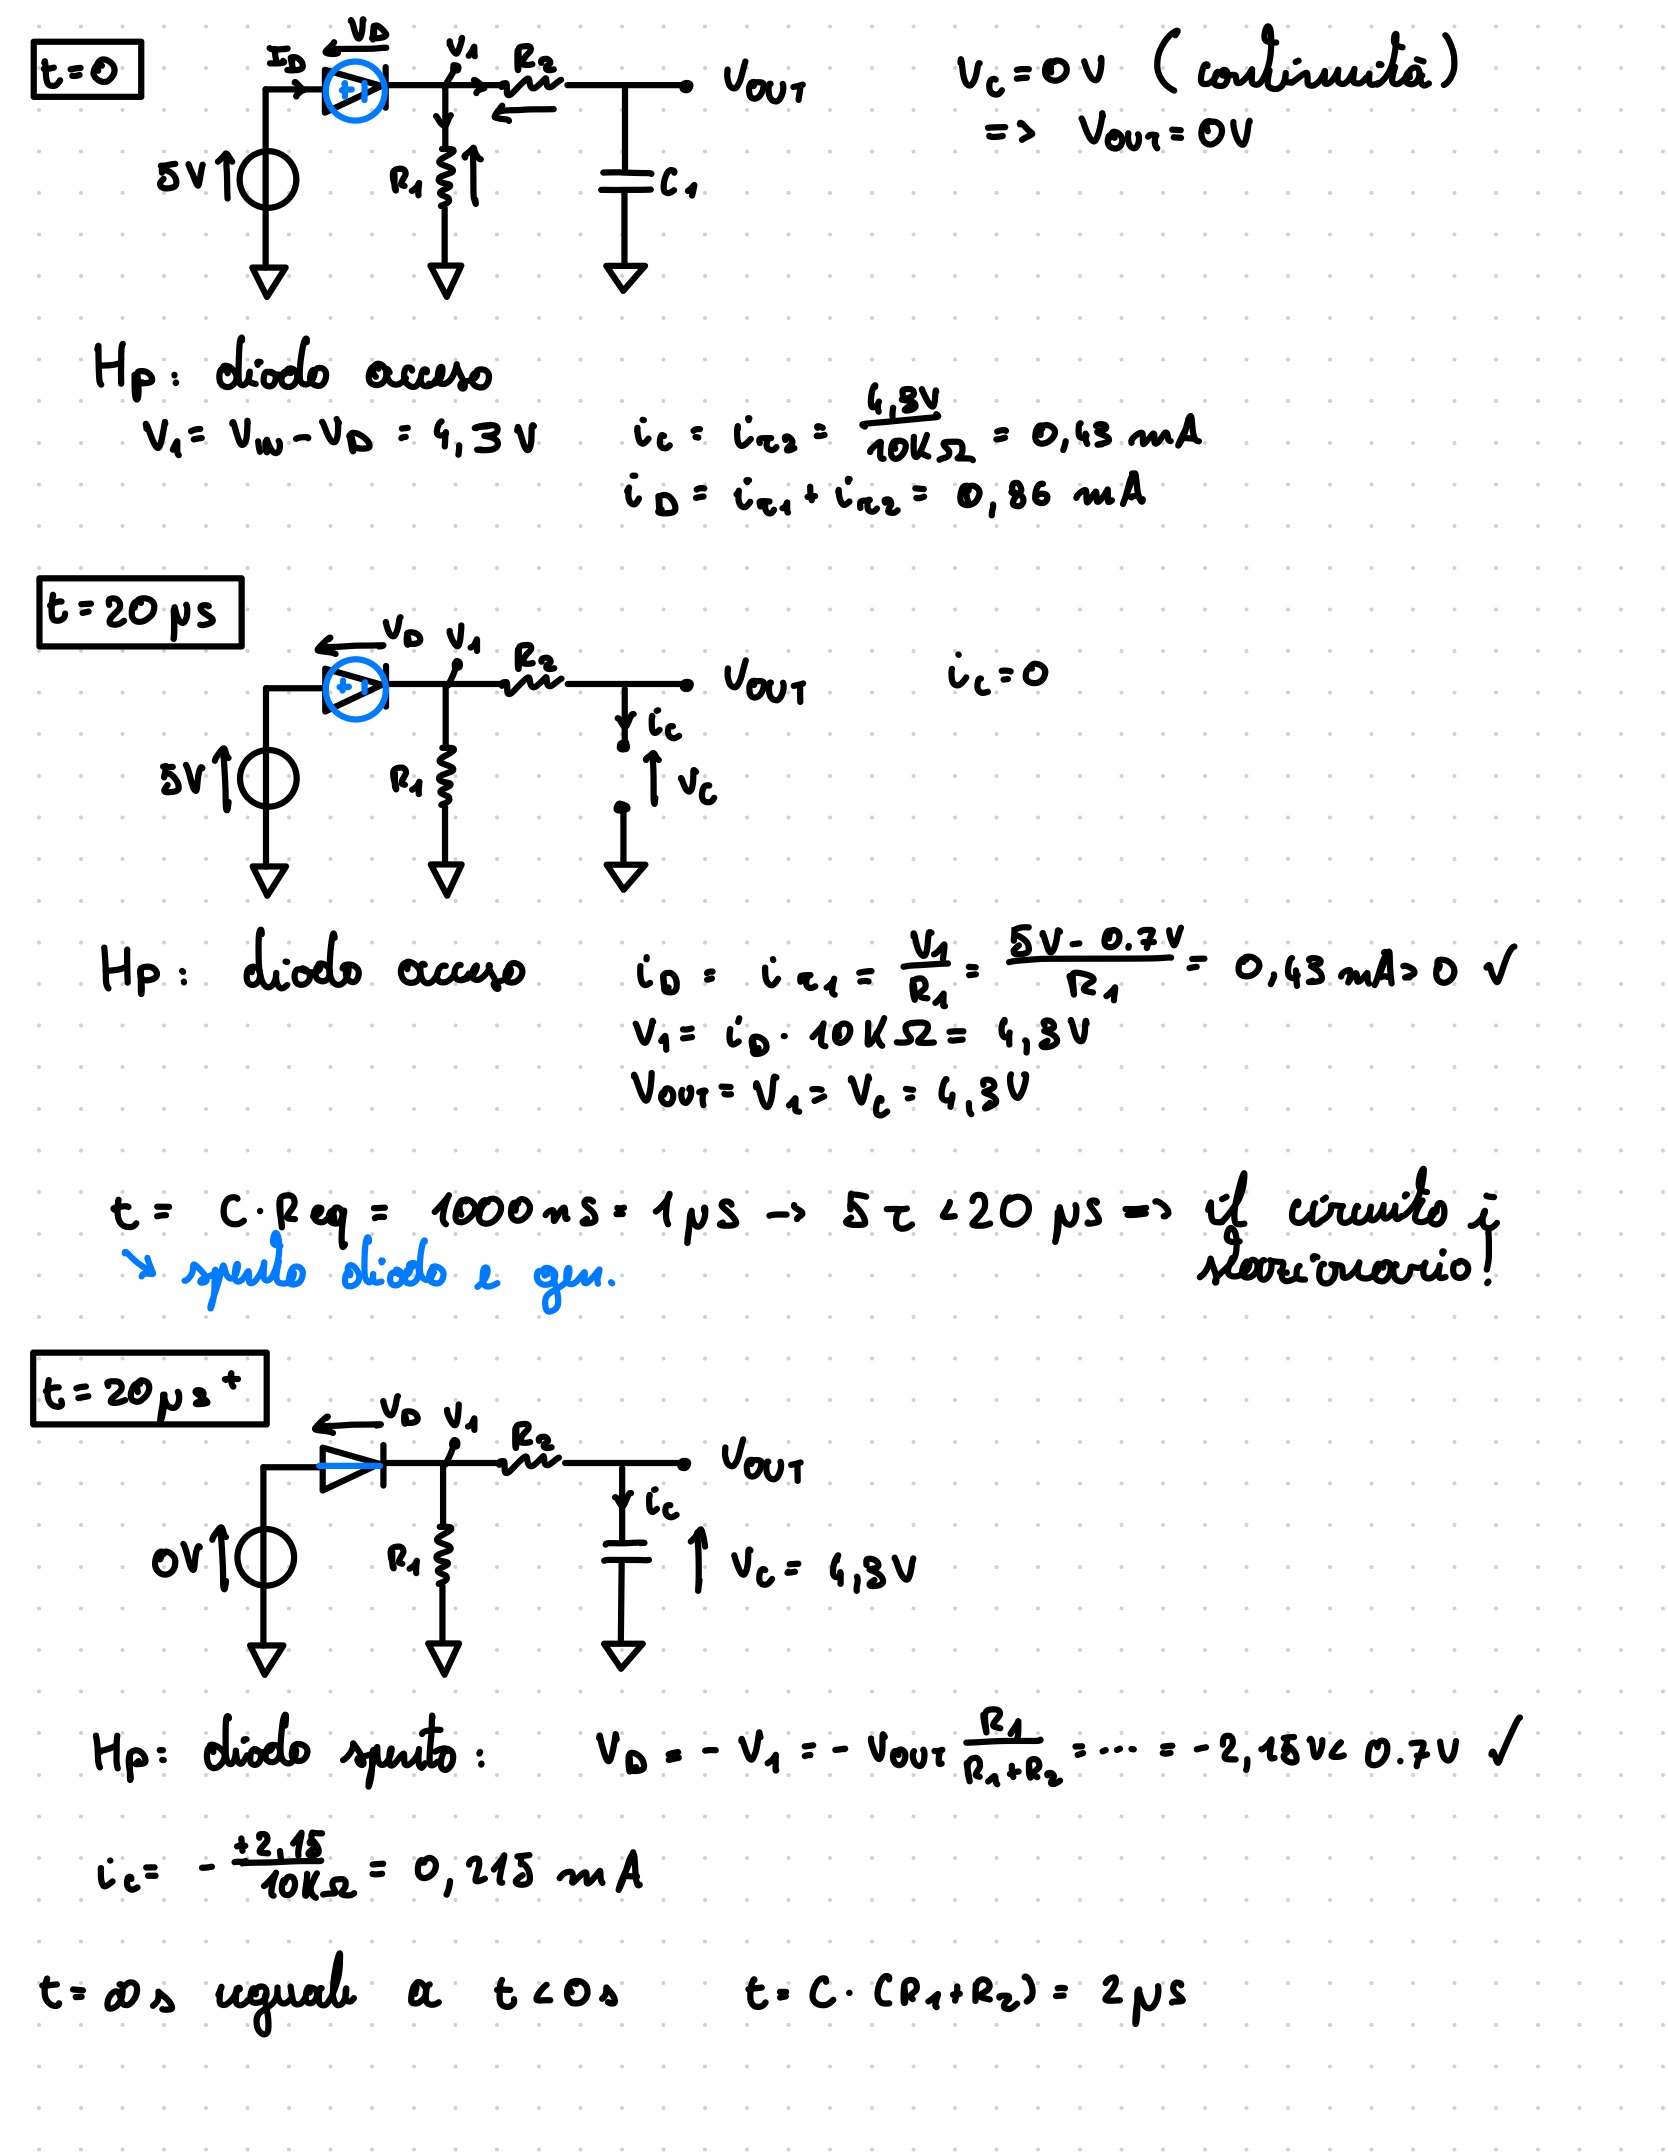 t=0
I_D
V_D
V_1
R_2
V_OUT
V_C = 0 V (continuità)
=> V_OUT = 0V
5V
R_1
C_1
Hp: diodo acceso
V_1 = V_IN - V_D = 4,3 V
i_C = i_r2 = 4,3V / 10KΩ = 0,43 mA
i_D = i_r1 + i_r2 = 0,86 mA
t = 20 μs
V_D
V_1
R_2
V_OUT
i_C = 0
5V
R_1
i_C
V_C
Hp: diodo acceso
i_D = i_r1 = V_1 / R_1 = 5V - 0.7V / R_1 = 0,43 mA > 0 ✓
V_1 = i_D · 10KΩ = 4,3V
V_OUT = V_1 = V_C = 4,3V
t = C · Req = 1000 ns = 1 μs -> 5τ < 20 μs => il circuito è
stazionario!
↘ spento diodo e gen.
t = 20 μs⁺
V_D
V_1
R_2
V_OUT
i_C
0V
R_1
V_C = 4,3V
Hp: diodo spento: V_D = - V_1 = - V_OUT R_1 / R_1+R_2 = ... = -2,15V < 0.7V ✓
i_C = - +2,15 / 10KΩ = 0,215 mA
t = ∞ s uguale a t < 0 s
t = C · (R_1+R_2) = 2 μs